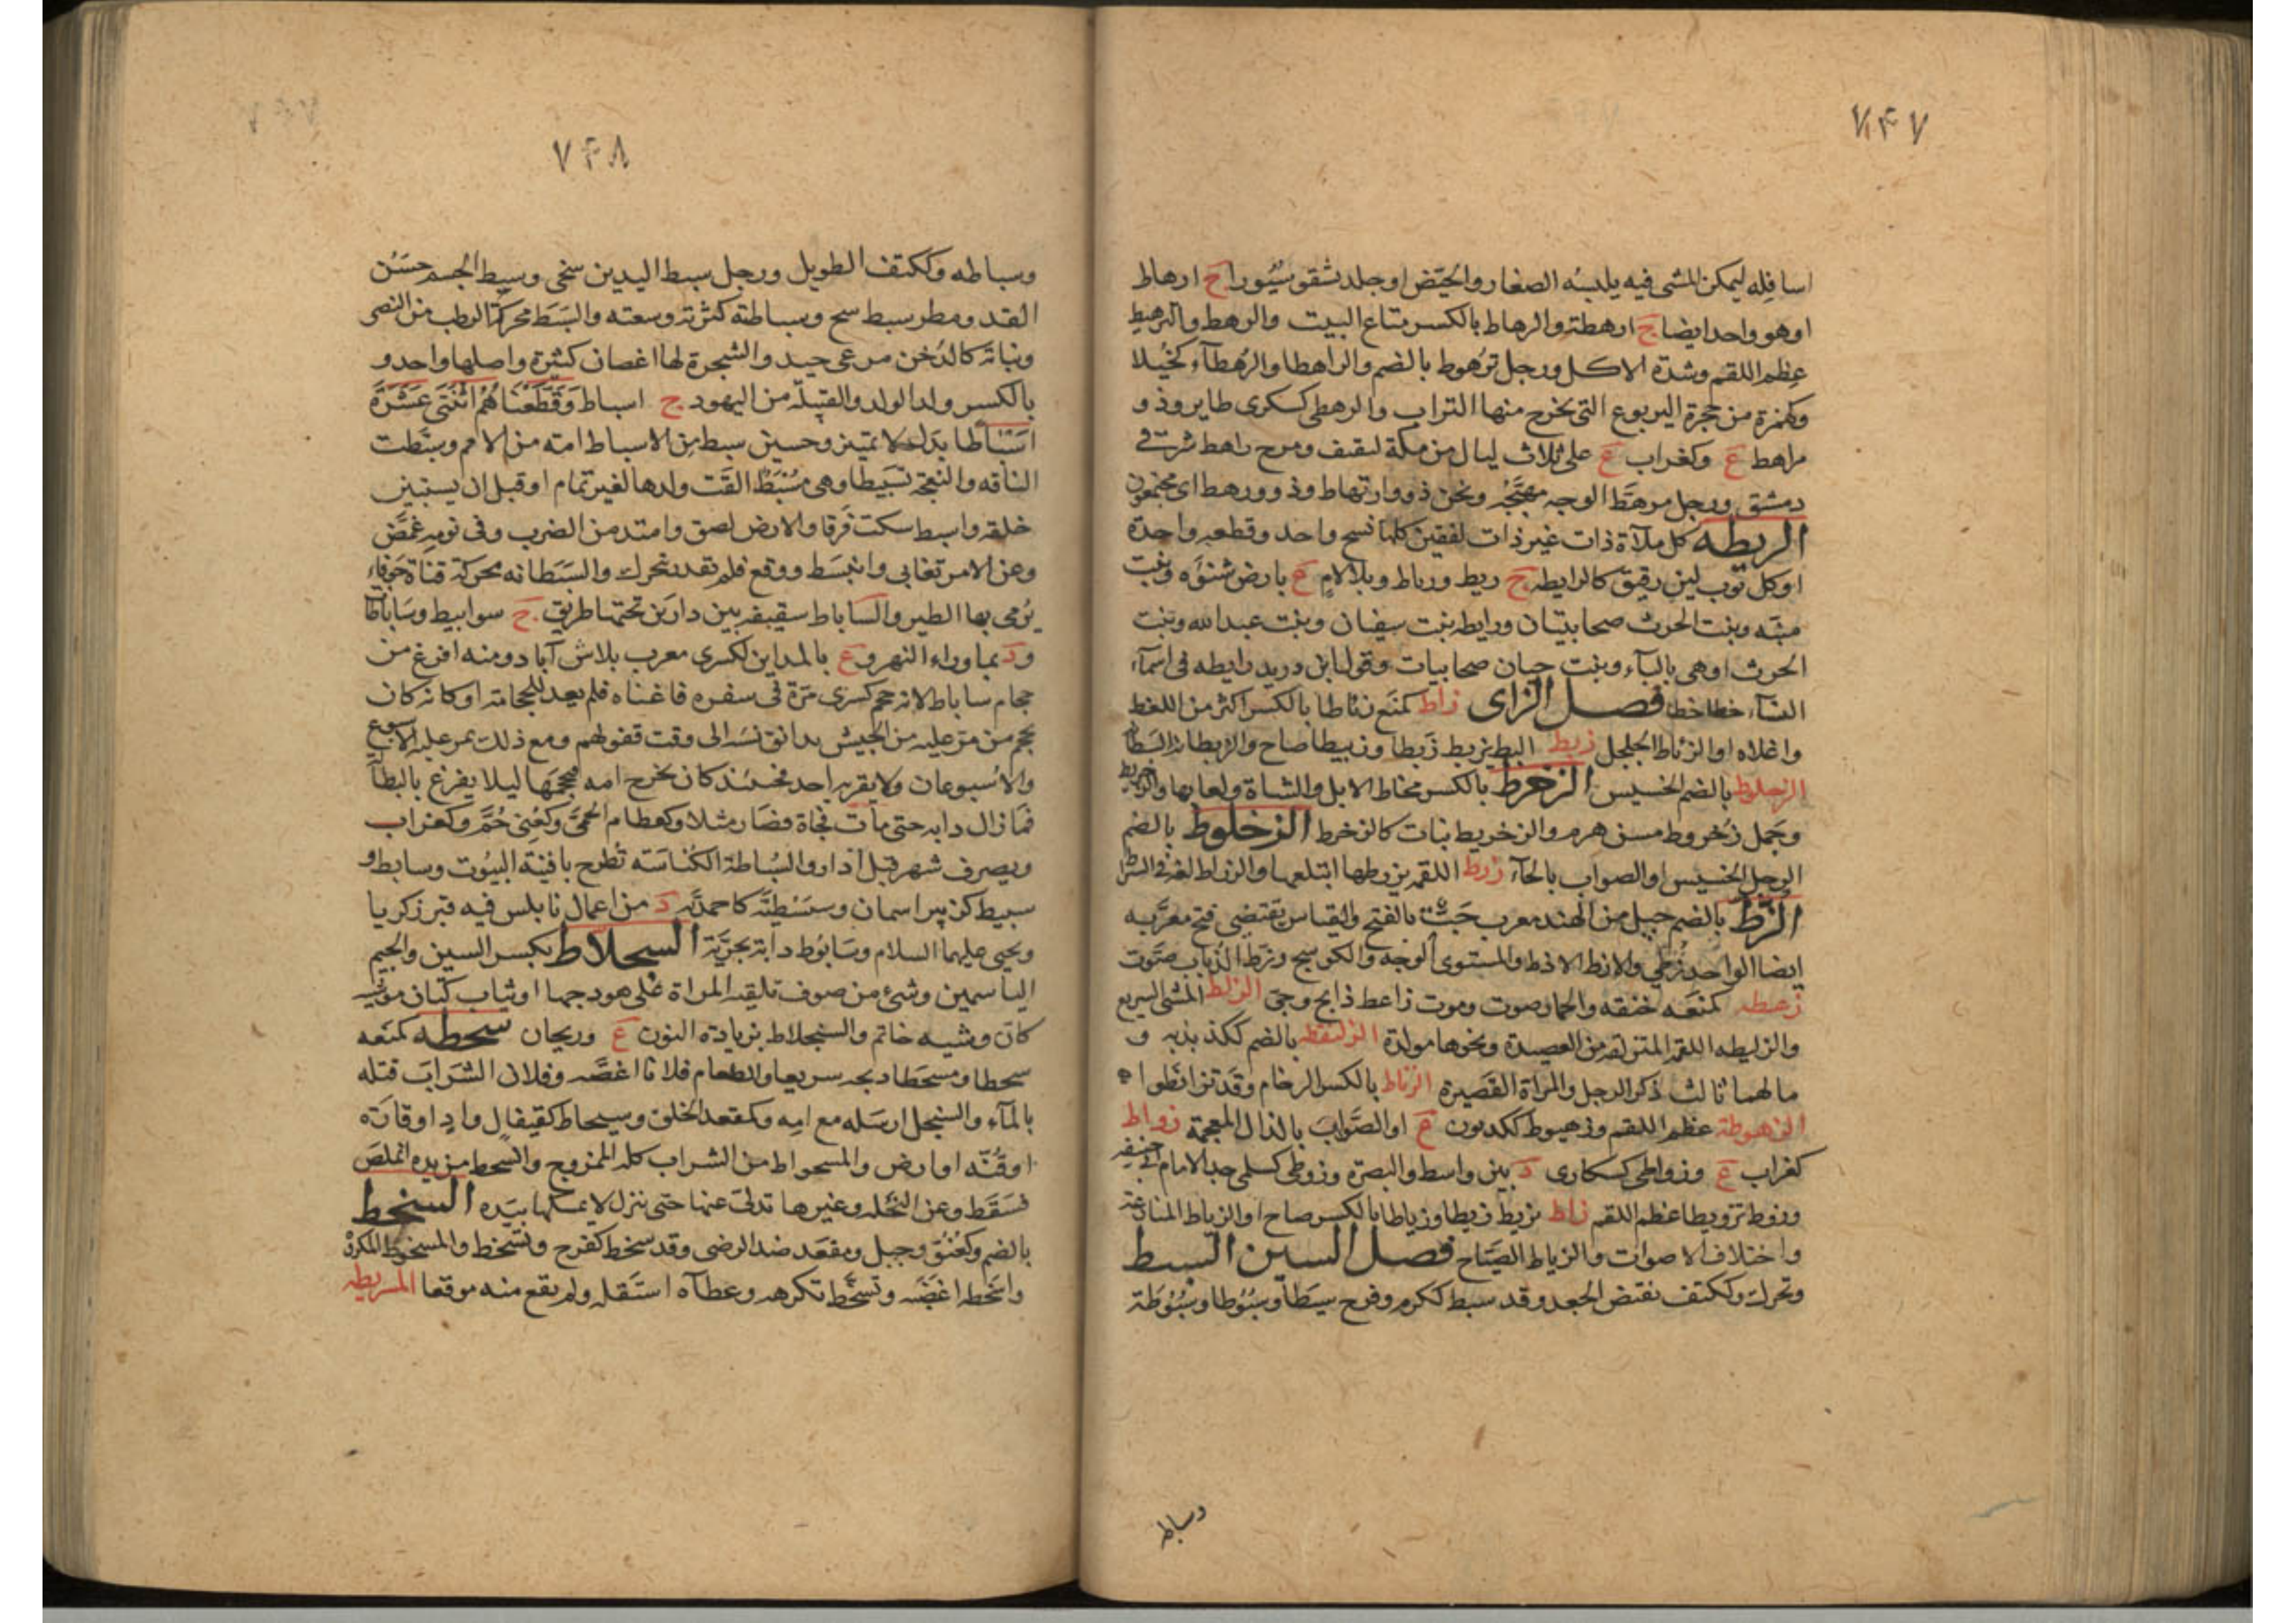 ٧۴٧
اسافله ليمكن المشى فيه يلبسُه الصغار والحيَّض او جلد شقق سيُورا ج ارهاط
او هو واحد ايضا ج ارهطة والرهاط بالكسر متاع البيت والرهط والترهيط
عظم اللقم وشدة الاكل ورجل تُرهوط بالضم والراهطا والرُهطآء كخُيلا
وكهمزة من حجرة اليربوع التى يخرج منها التراب والرهطى كسكرى طاير وذو
مراهط ع وكغراب ع على ثلاث ليال من مكة لثقيف ومرج راهط شرقى
دمشق ورجل مرهَّط الوجه مهبَّجُه ونحن ذوو ارتهاط وذوو رهط اى مجتمعون
الريطه كل ملآة ذات غير ذات لفقين كلها نسج واحد وقطعه واحدة
او كل ثوب لين رقيق كالرايطه ج ريط ورياط وبلالامٍ ع بارض شنوَه وبنت
منبّه وبنت الحرث صحابيتان ورايطه بنت سفيان وبنت عبد الله وبنت
الحرث او هى بالبآء وبنت حيان صحابيات وقول ابن دريد رايطه فى اسمآء
النسآء خطا خطا فصل الزاى زاط كمنَع زئاطا بالكسر اكثر من اللغط
واغلاه او الزئاط الجلجل زبط البط يزبط زَبطا وزبيطا صاح والزبطانه السبطانه
الزحلوط بالضم الخسيس الزخرط بالكسر مخاط الابل والشاة ولعابها والزخريط
وجَمل زُخروط مسن هرم والزخريط نبات كالزخرط الزخلوط بالضم
الرجل الخسيس او الصواب بالحآء زرط اللقمه يزرطها ابتلعها والزراط لغة فى السراط
الزط بالضم جيل من الهند معرب جَتّ بالفتح والقياس يقتضى فتح معرَّبه
ايضا الواحد زُطى والازط الاذط والمستوى الوجه والكوسج وزط الذباب صَوت
زعطه كمنعَه خنقه والحمار صوت وموت زاعط ذابح وحىّ الزلط المشى السريع
والزليطه اللقمة المتزلقه من العصيدة ونحوها مولدة الزلنقطه بالضم ككذبذبه و
ما لهما ثالث ذكر الرجل والمراة القَصيرة الزناط بالكسر الزحام وقد تزانطوا
الزهوطة عظم اللقم وزهيوط ككديون ع او الصَّوابَ بالذال المعجمة زواط
كغراب ع وزواطى كسكارى د بين واسط والبصرة وزوطى كسلمى جد الامام ابى حنيفه
وزوط تزويطا عظم اللقم زاط يزيط زيطا وزياطا بالكسر صاح او الزياط المنازعة
واختلاف الاصوات والزياط الصَيّاح فصل السين السبط
وتحرك وككتف نقيض الجعد وقد سبط ككرم وفرح سبطا وسُبُوطا وسُبُوطة
وساط
٧۴٨
وسباطه وككتف الطويل ورجل سبط اليدين سخى وسبط الجسم حسَنُ
القد ومطر سبط سح وسباطته كثرته وسعته والسَبَط محركة الرطب من النصى
ونباته كالدُخن مرعى جيد والشجرة لها اغصان كثيرة واصلها واحد و
بالكسر ولد الولد والقبيله من اليهود ج اسباط وَقَطَّعْنَاهُمُ اثْنَتَى عَشْرَةَ
اَسْبَاطا بدل لا تمييز وحسين سبط من الاسباط امة من الامم وسبّطت
الناقه والنعجة تسَبيطا وهى مُسَبّطٌ القَت ولدها لغير تمام او قبل ان يستبين
خلقه واسبط سكت فَرقا والارض لصق وامتد من الضرب وفى نومِه غمَّض
وعن الامر تغابى وانبسَط ووقع فلم يقدر يتحرك والسَبَطانه محركة قناة جوفاء
يُرمى بها الطير والساباط سقيفة بين دارَين تحتها طريق ج سوابيط وسَاباطات
و د بما وراء النهر و ع بالمداين لكسرى معرب بلاش آباد ومنه افرغ من
حجام ساباط لانه حجم كسرى مَرّة فى سفره فاغناه فلم يعد للحجامة او كانه كان
يحجم من مرّ عليه من الجيش بدانق نَسَه الى وقت قفولهم ومع ذلك يمر عليه الاسبوع
والاسُبوعان ولا يقربه احد فحينئذ كان يخرج امه فيحجمَها ليلا يفزع بالبطآلة
فمَا زال دابه حتى مات فجاة فصَار مثلا وكعطام الحمَّى وكعُنِى حُمَّ وكغراب
ويصرف شهر قبل آذار والسُباطة الكُناسَه تُطرح بافنية البيُوت وسابط و
سبيط كزبير اسمان وسبَسْطيَّة كاحمديّه د من اعمال نابلس فيه قبر زكريا
ويحيى عليهما السلام وسَابوُط دابة بحريَّة السجلاط بكسر السين والجيم
الياسمين وشئ من صوف تلقيه المراة على هودجها او ثياب كتان موشيه
كان وشيه خاتم والسنجلاط بزيادة النون ع وريحان سحطه كمنَعه
سحطا ومَسحَطا ذبحه سريعا والطعام فلانا اغصَّه وفلان الشرَابَ قتله
بالمآء والسخل ارسَله مع امِه وكمقعد الحَلق وسيحاط كقيفال وادٍ او قارَة
او قُنّه او ارض والمسحوط من الشراب كله الممزوج والسحط من يده املصَ
فسَقَط وعن النخله وغيرها تدلىّ عنها حتى ينزل لا يمسكها بيَده السخط
بالضم وكعُنُقٍ وجبل ومقعَد ضد الرضى وقد سخط كفرح وتسَخط والمسخوط المكروه
واسَخطه اغضَبَه وتسخّط تكرهه وعطآه استَقله ولم يقع منه موقعا المسربطه